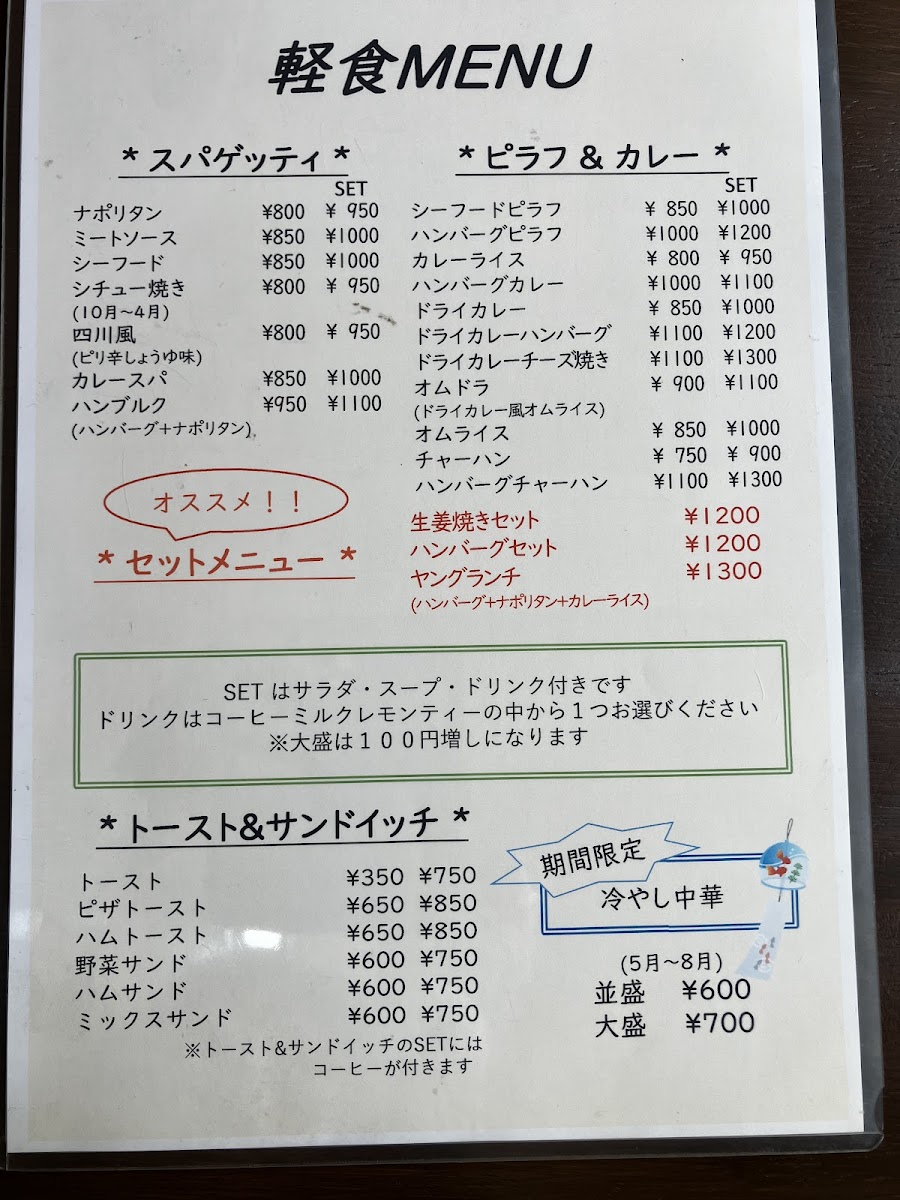 軽食MENU
* スパゲッティ *
SET
ナポリタン ¥800 ¥ 950
ミートソース ¥850 ¥1000
シーフード ¥850 ¥1000
シチュー焼き ¥800 ¥ 950
(10月～4月)
四川風 ¥800 ¥ 950
(ピリ辛しょうゆ味)
カレースパ ¥850 ¥1000
ハンブルク ¥950 ¥1100
(ハンバーグ+ナポリタン)
* ピラフ & カレー *
SET
シーフードピラフ ¥ 850 ¥1000
ハンバーグピラフ ¥1000 ¥1200
カレーライス ¥ 800 ¥ 950
ハンバーグカレー ¥1000 ¥1100
ドライカレー ¥ 850 ¥1000
ドライカレーハンバーグ ¥1100 ¥1200
ドライカレーチーズ焼き ¥1100 ¥1300
オムドラ ¥ 900 ¥1100
(ドライカレー風オムライス)
オムライス ¥ 850 ¥1000
チャーハン ¥ 750 ¥ 900
ハンバーグチャーハン ¥1100 ¥1300
オススメ！！
* セットメニュー *
生姜焼きセット ¥1200
ハンバーグセット ¥1200
ヤングランチ ¥1300
(ハンバーグ+ナポリタン+カレーライス)
SET はサラダ・スープ・ドリンク付きです
ドリンクはコーヒーミルクレモンティーの中から１つお選びください
※大盛は１００円増しになります
* トースト&サンドイッチ *
トースト ¥350 ¥750
ピザトースト ¥650 ¥850
ハムトースト ¥650 ¥850
野菜サンド ¥600 ¥750
ハムサンド ¥600 ¥750
ミックスサンド ¥600 ¥750
※トースト&サンドイッチのSETには
コーヒーが付きます
期間限定
冷やし中華
(5月～8月)
並盛 ¥600
大盛 ¥700